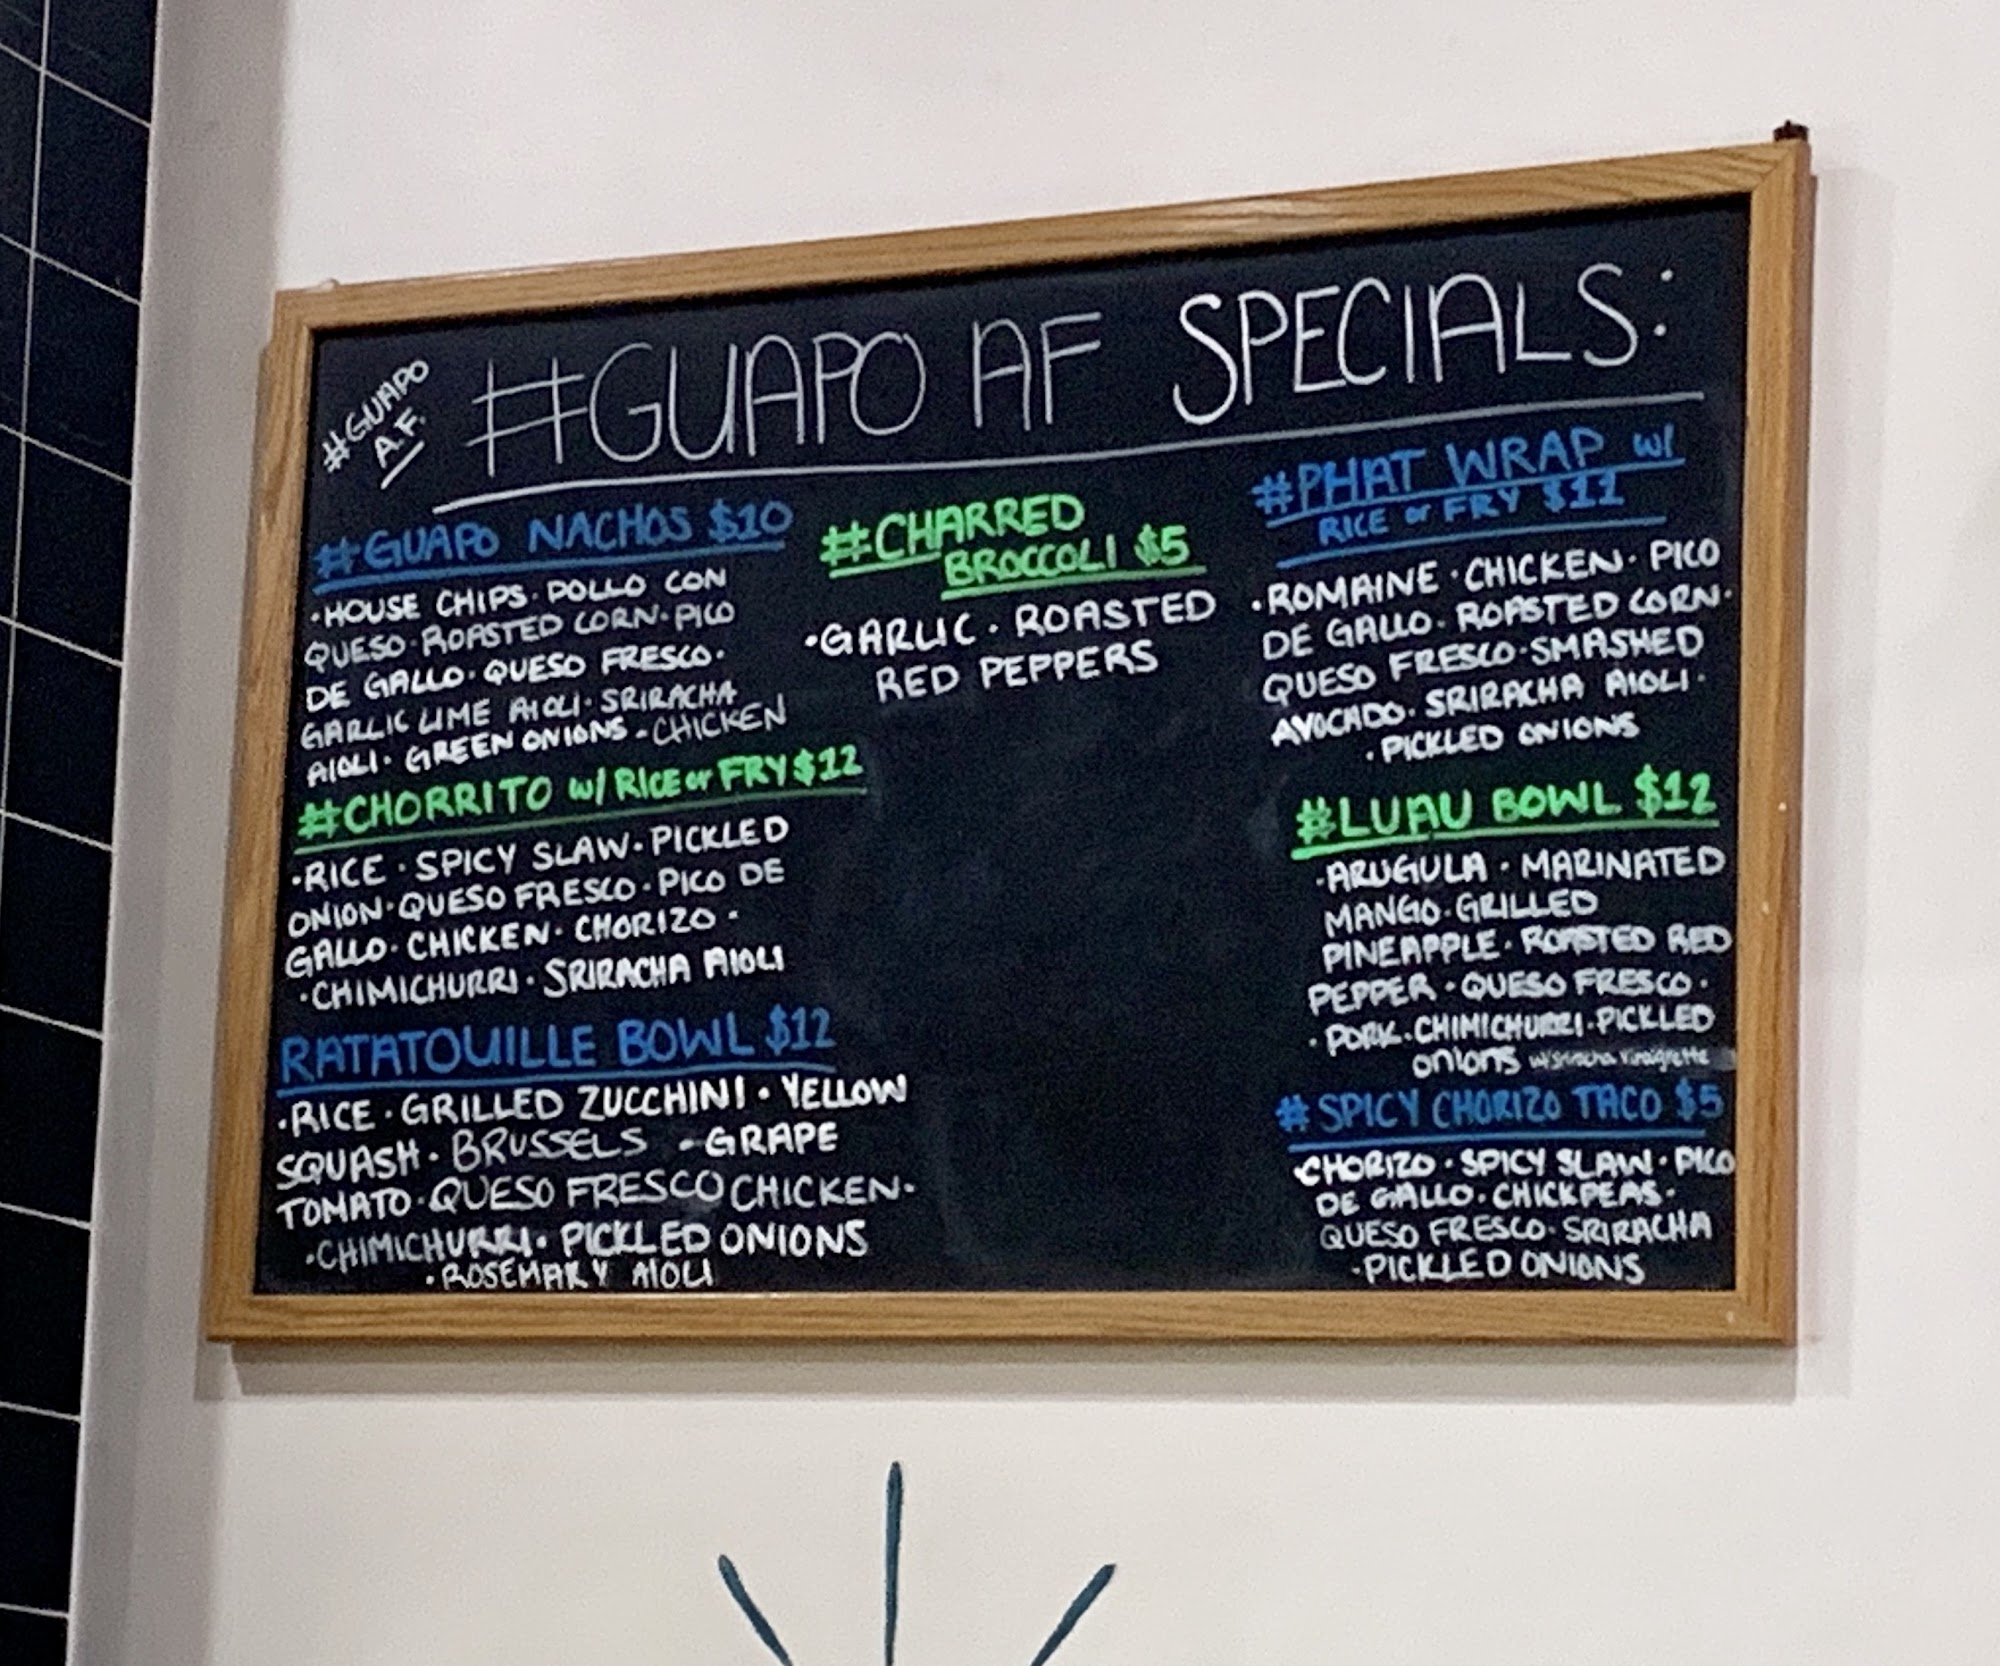 #GUAPO
A.F.
#GUAPO AF SPECIALS:
#GUAPO NACHOS $10
·HOUSE CHIPS·POLLO CON
QUESO·ROASTED CORN·PICO
DE GALLO·QUESO FRESCO·
GARLIC LIME AIOLI·SRIRACHA
AIOLI·GREEN ONIONS-CHICKEN
#CHORRITO w/ RICE or FRY $12
·RICE·SPICY SLAW·PICKLED
ONION·QUESO FRESCO·PICO DE
GALLO·CHICKEN·CHORIZO·
·CHIMICHURRI·SRIRACHA AIOLI
RATATOUILLE BOWL $12
·RICE·GRILLED ZUCCHINI·YELLOW
SQUASH·BRUSSELS -GRAPE
TOMATO·QUESO FRESCO CHICKEN·
·CHIMICHURRI·PICKLED ONIONS
·ROSEMARY AIOLI
#CHARRED
BROCCOLI $5
·GARLIC·ROASTED
RED PEPPERS
#PHAT WRAP w/
RICE or FRY $11
·ROMAINE·CHICKEN·PICO
DE GALLO·ROASTED CORN·
QUESO FRESCO·SMASHED
AVOCADO·SRIRACHA AIOLI·
·PICKLED ONIONS
#LUAU BOWL $12
·ARUGULA·MARINATED
MANGO·GRILLED
PINEAPPLE·ROASTED RED
PEPPER·QUESO FRESCO·
·PORK·CHIMICHURRI·PICKLED
onions w/sriracha vinaigrette
#SPICY CHORIZO TACO $5
·CHORIZO·SPICY SLAW·PICO
DE GALLO·CHICKPEAS·
QUESO FRESCO·SRIRACHA
·PICKLED ONIONS